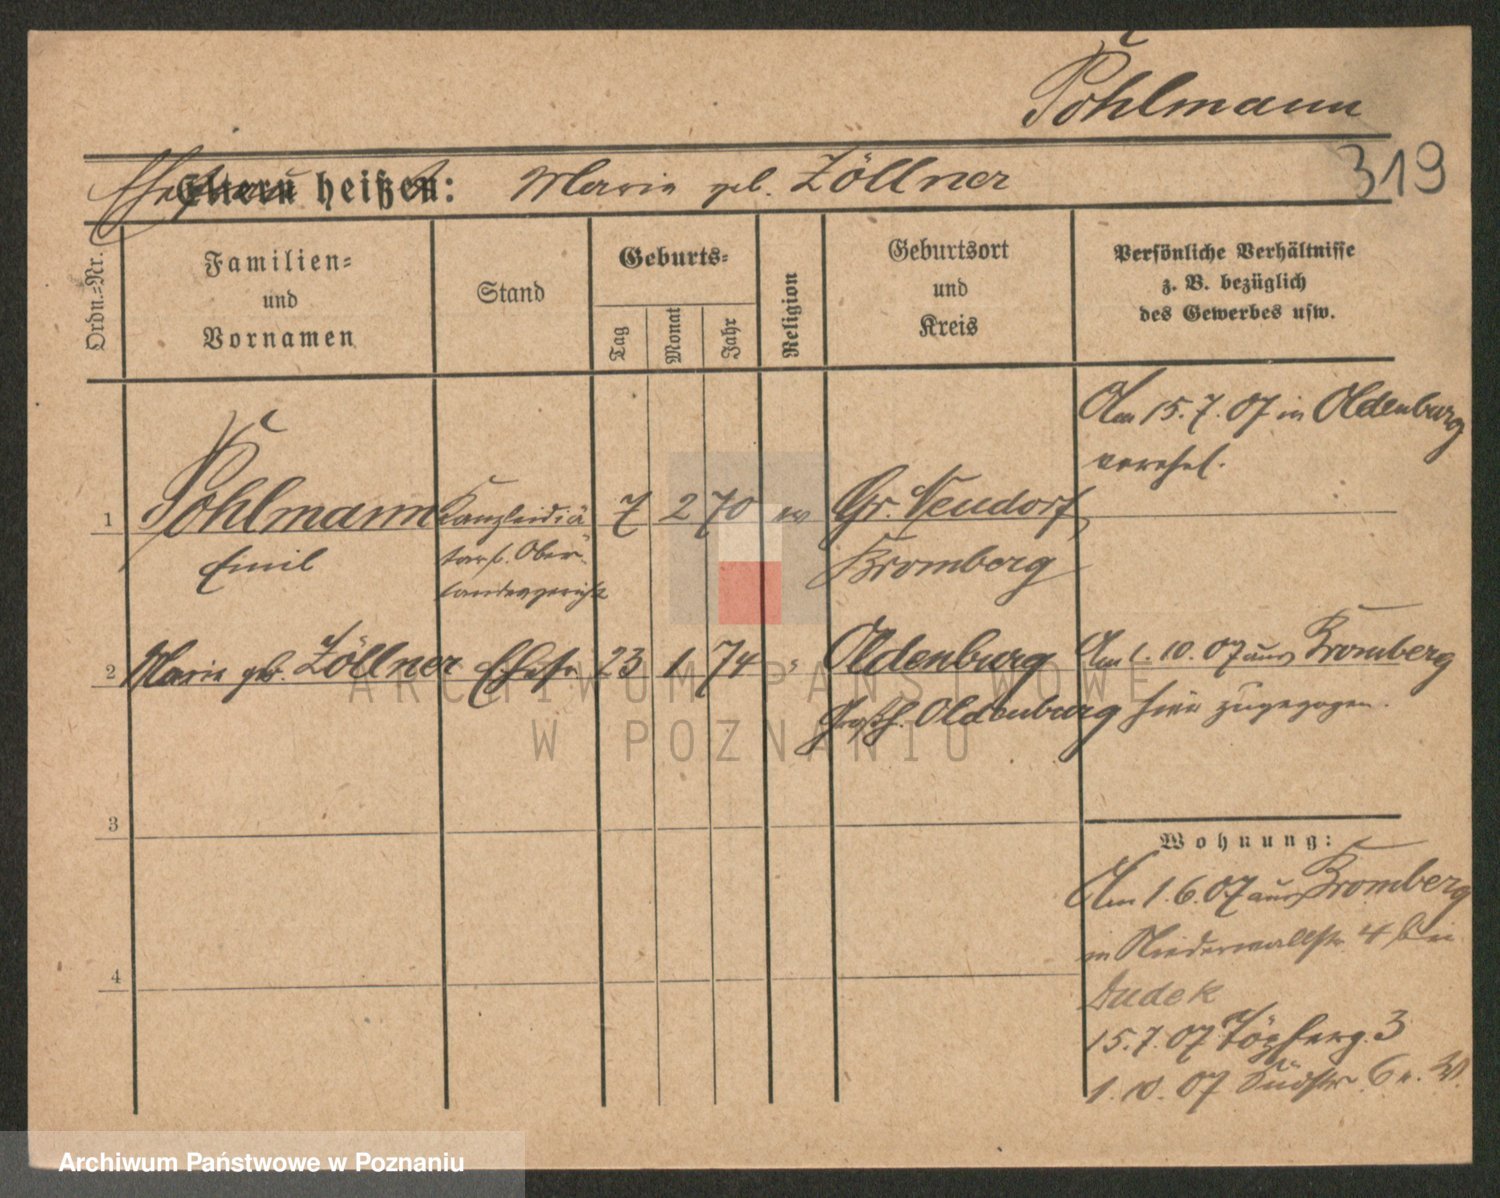 Pohlmann
319
Eltern heißen: Marie geb. Zöllner
Ordn.-Nr.
Familien-
und
Vornamen
Stand
Geburts-
Tag
Monat
Jahr
Religion
Geburtsort
und
Kreis
Persönliche Verhältnisse
z. B. bezüglich
des Gewerbes usw.
Am 15.7.07 in Oldenburg
verehel.
1 Pohlmann Kanzleidiä 7 2 70 ev Gr. Neudorf
Emil tar b. Ober- Bromberg
landesgericht
2 Marie geb. Zöllner Ehefr 23 1 74 " Oldenburg Am 1.10.07 aus Bromberg
Großh. Oldenburg hier zugezogen.
3
Wohnung:
Am 1.6.07 aus Bromberg
in Niederwallstr 4 bei
Dudek
4
15.7.07 Töpferg. 3
1.10.07 Südstr 6
ARCHIWUM PAŃSTWOWE
W POZNANIU
Archiwum Państwowe w Poznaniu